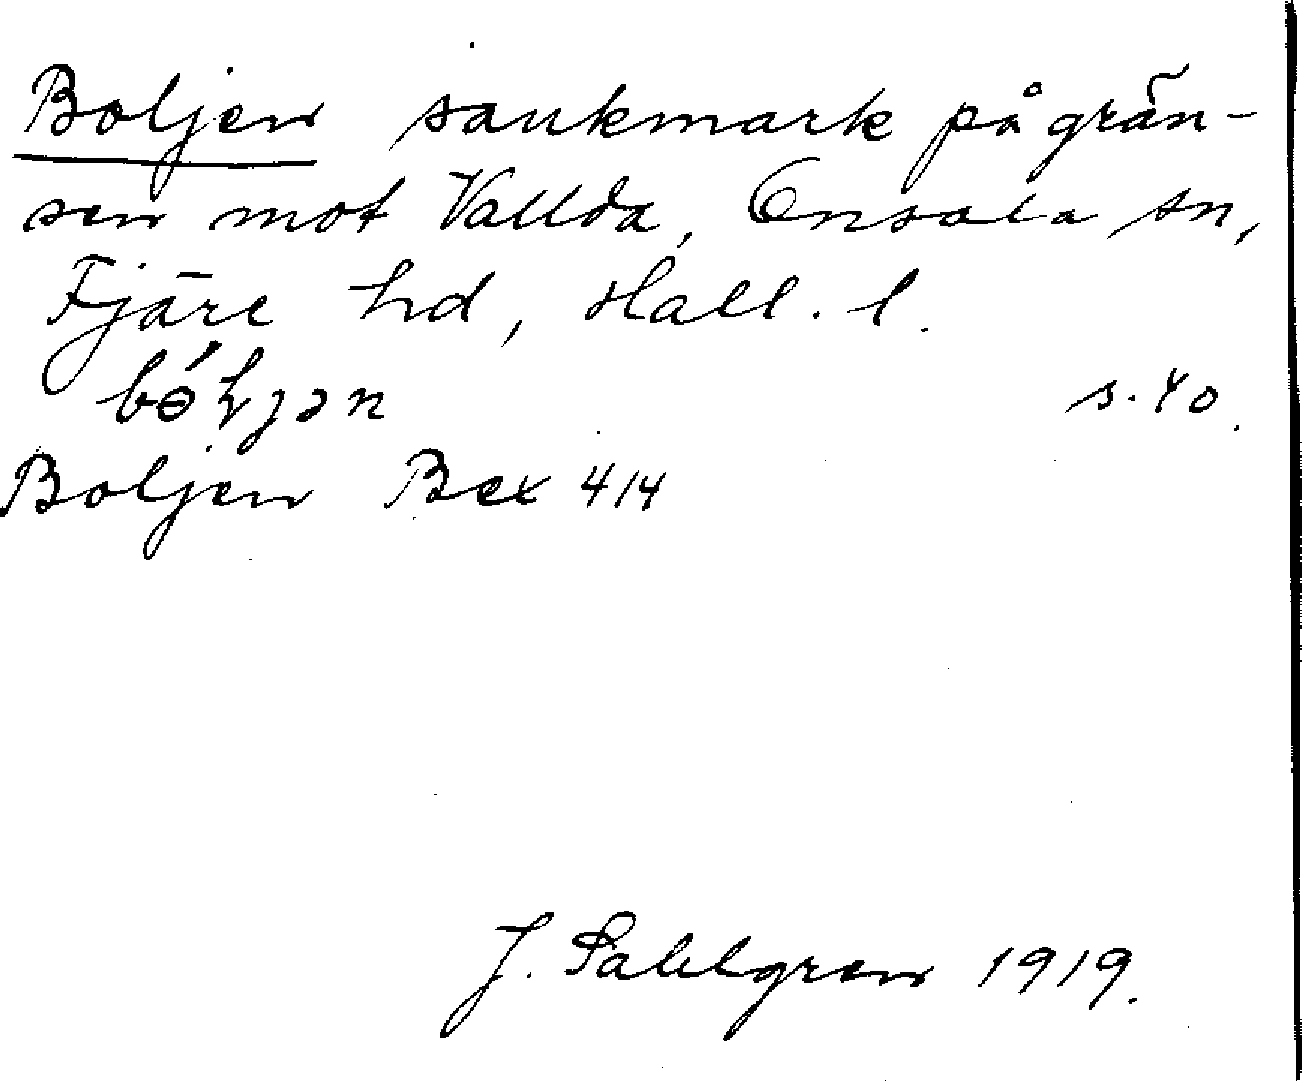 Boljen sankmark på grän-
sen mot Vallda, Onsala sn,
Fjäre hd, Hall. l.
s. 40.
Boljen Bex 414
J. Sahlgren 1919.